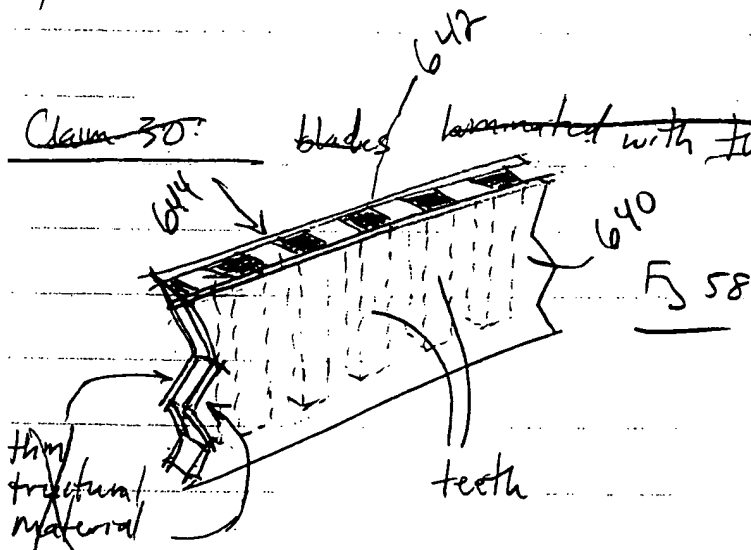 642
Claim 30: blades laminated with
644
640
Fig 58
thin
structural
material
teeth